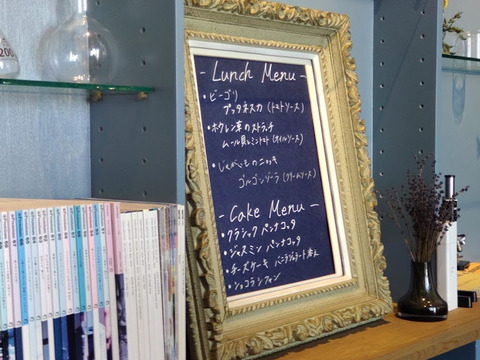 - Lunch Menu -
・ピーゴリ
プッタネスカ (トマトソース)
・ホウレン草のストラッチ
ムール貝とミニトマト (オイルソース)
・じゃがいものニョッキ
ゴルゴンゾーラ (クリームソース)
- Cake Menu -
・クラシック パンナコッタ
・ジャスミン パンナコッタ
・チーズケーキ バニラジェラート添え
・ショコラシフォン
200